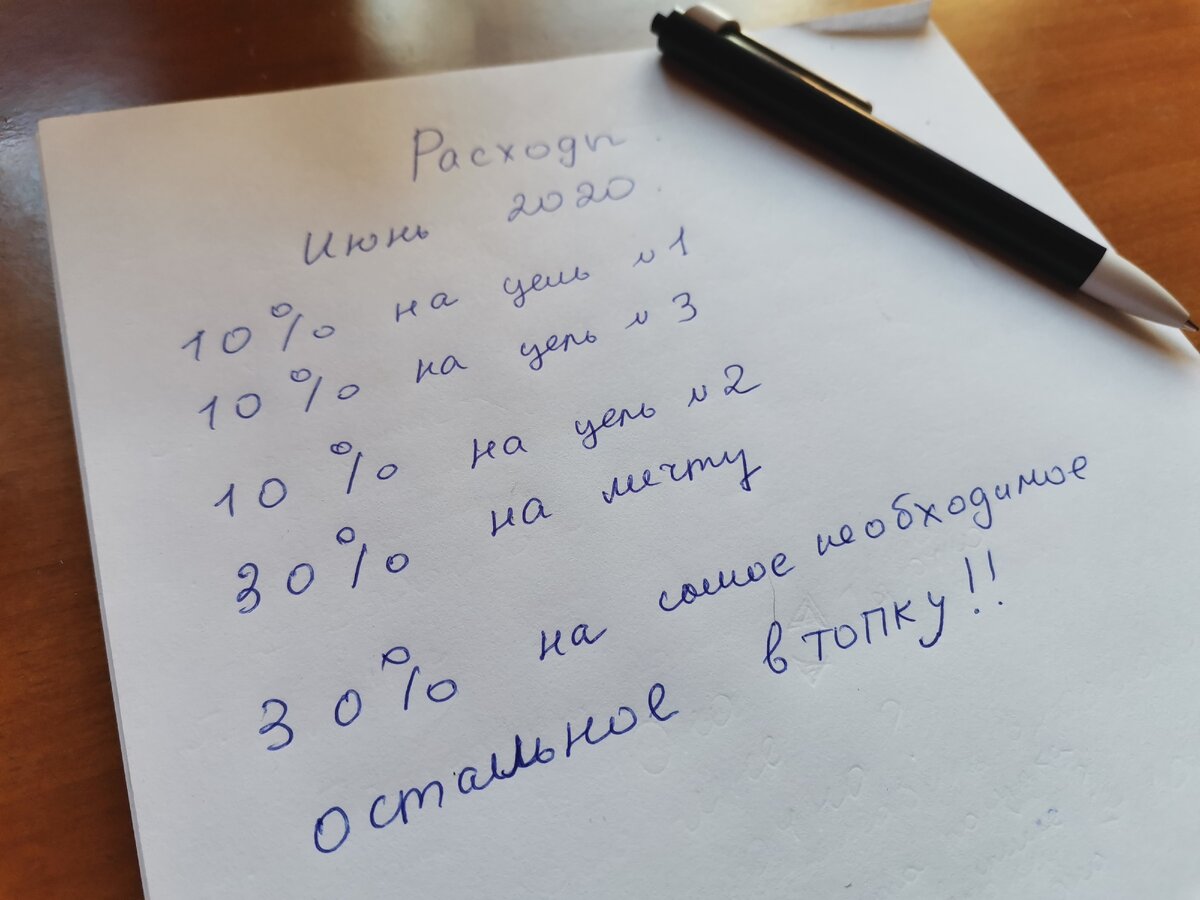 Расходы
Июнь 2020.
10% на цель №1
10% на цель №3
10% на цель №2
30% на мечту
30% на самое необходимое
остальное в топку!!